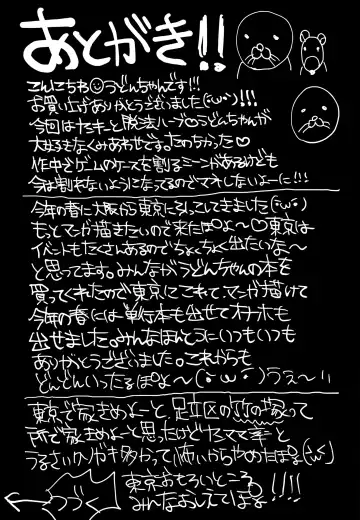 あとがき!!
こんにちわ うどんちゃんです!!!
お買い上げありがとうございました(´ω`)!!!
今回はヤンキーと脱法ハーブ♡うどんちゃんが
大好きなくみあわせです。たのちかった♡
作中でゲームのケースを割るシーンがあるけども
今は割れないようになってるのでマネしないよーに!!!
今年の春に大阪から東京に引っこしてきました(´ω`)
もっとマンガ描きたいので来たぱよ〜♡東京は
イベントもたくさんあるのでちょくちょく出たいな〜
と思ってます。みんながうどんちゃんの本を
買ってくれたので東京にこれて、マンガ描けて
今年の春には単行本も出せてオナホも
出せました。みんなほんとうにいつもいつも
ありがとうございました。これからも
どんどんいったるぱよ〜(´・ω・`)うぇ〜い
東京で家きめよーと、足立区の竹の塚って
所で家きめよーと思ったけどヤンママ率と
うるさいクソガキ多かって怖いからやめたぱよ(´ω`)
東京おもろいところ
みんなおしえてぱよ!!!!
つづく